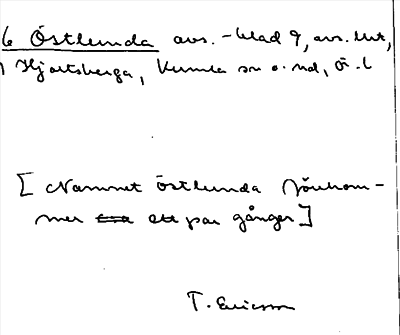 6 Östlunda avs. - blad 9, avs. hut,
Hjortsberga, Kumla sn o. hd, Ö. l
[Namnet Östlunda förekom-
mer ett par gånger]
T. Ericsson